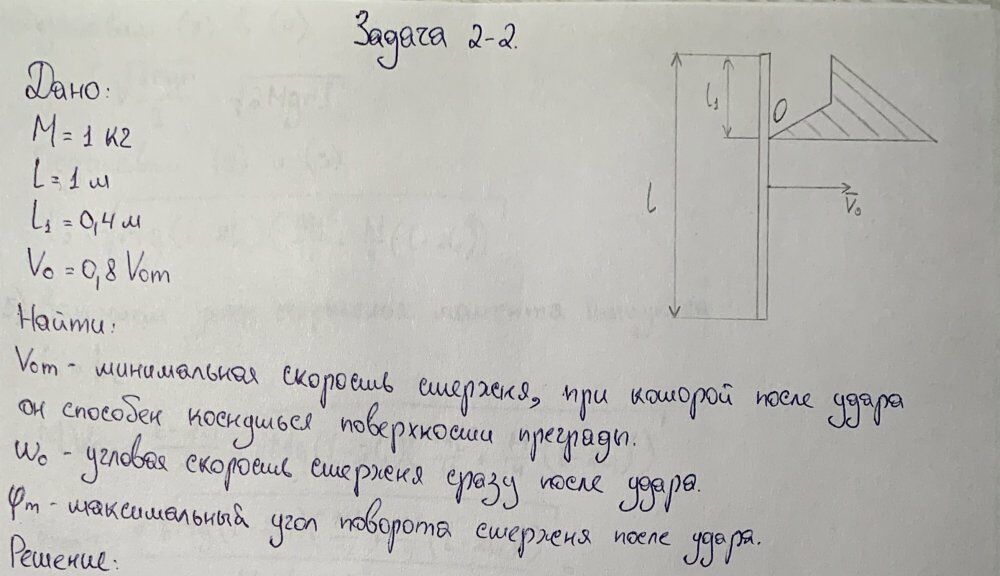 Задача 2-2.
Дано:
M = 1 кг
L = 1 м
L₁ = 0,4 м
V₀ = 0,8 Vom
Найти:
Vom - минимальная скорость стержня, при которой после удара
он способен коснуться поверхности преграды.
ω₀ - угловая скорость стержня сразу после удара.
φm - максимальный угол поворота стержня после удара.
Решение:
l
l₁
O
V̄₀